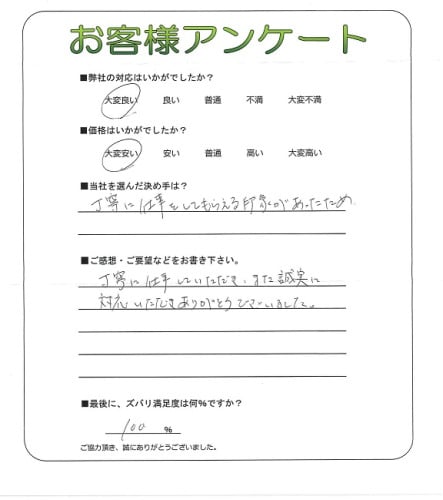 お客様アンケート
■弊社の対応はいかがでしたか?
大変良い 良い 普通 不満 大変不満
■価格はいかがでしたか?
大変安い 安い 普通 高い 大変高い
■当社を選んだ決め手は?
丁寧に仕事をしてもらえる印象があったため
■ご感想・ご要望などをお書き下さい。
丁寧に仕事していただき、また誠実に
対応いただきありがとうございました。
■最後に、ズバリ満足度は何%ですか?
100 %
ご協力頂き、誠にありがとうございました。